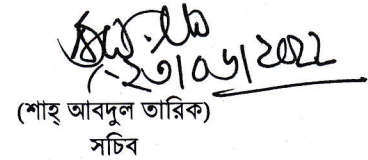 ২৩/০৬/2022
(শাহ্ আবদুল তারিক)
সচিব